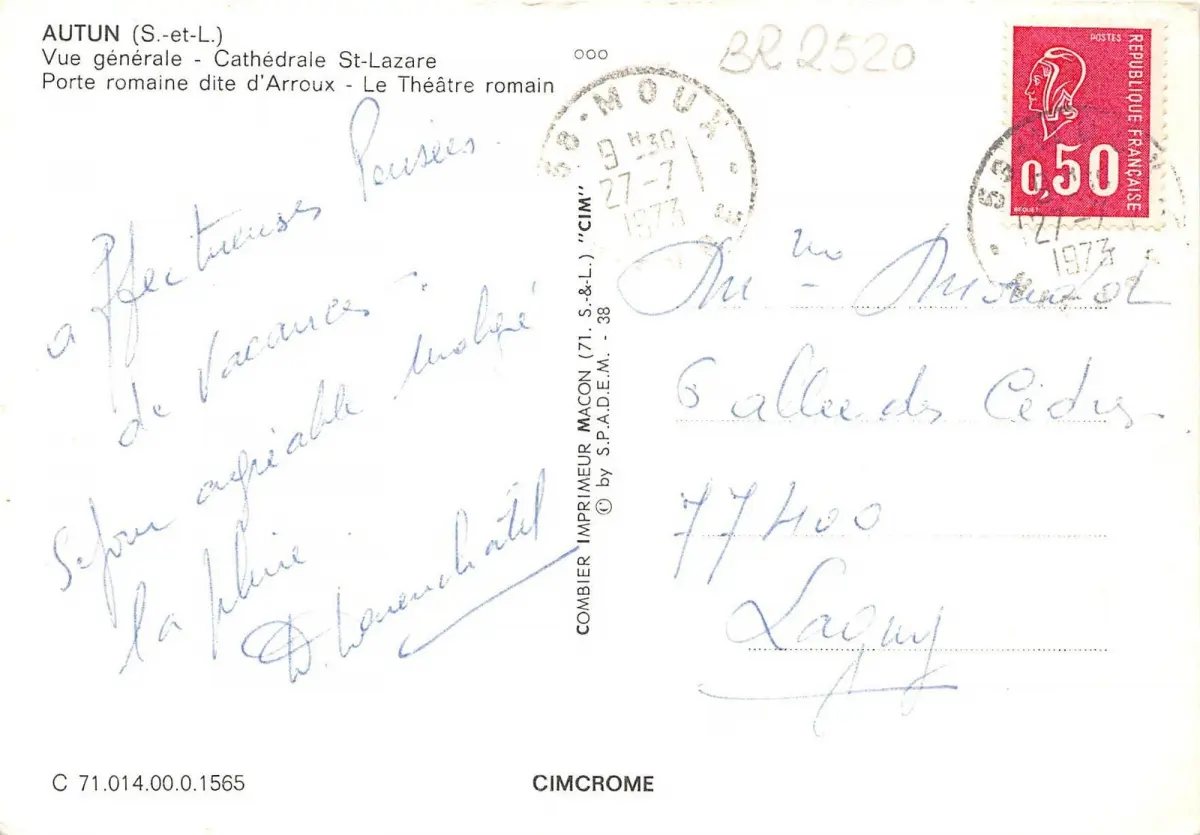 AUTUN (S.-et-L.)
Vue générale - Cathédrale St-Lazare
Porte romaine dite d'Arroux - Le Théâtre romain
BR 2520
58 - MOUX
9 H30
27-7
1973
POSTES
REPUBLIQUE FRANÇAISE
0,50
BEQUET
58
27-7
1973
affectueuses Pensées.
de vacances.
Séjour agréable malgré
la pluie
D.
COMBIER IMPRIMEUR MACON (71. S.-&-L.) "CIM"
© by S.P.A.D.E.M. - 38
Mme
6 allee des Cèdres
77400
Lagny
C 71.014.00.0.1565
CIMCROME